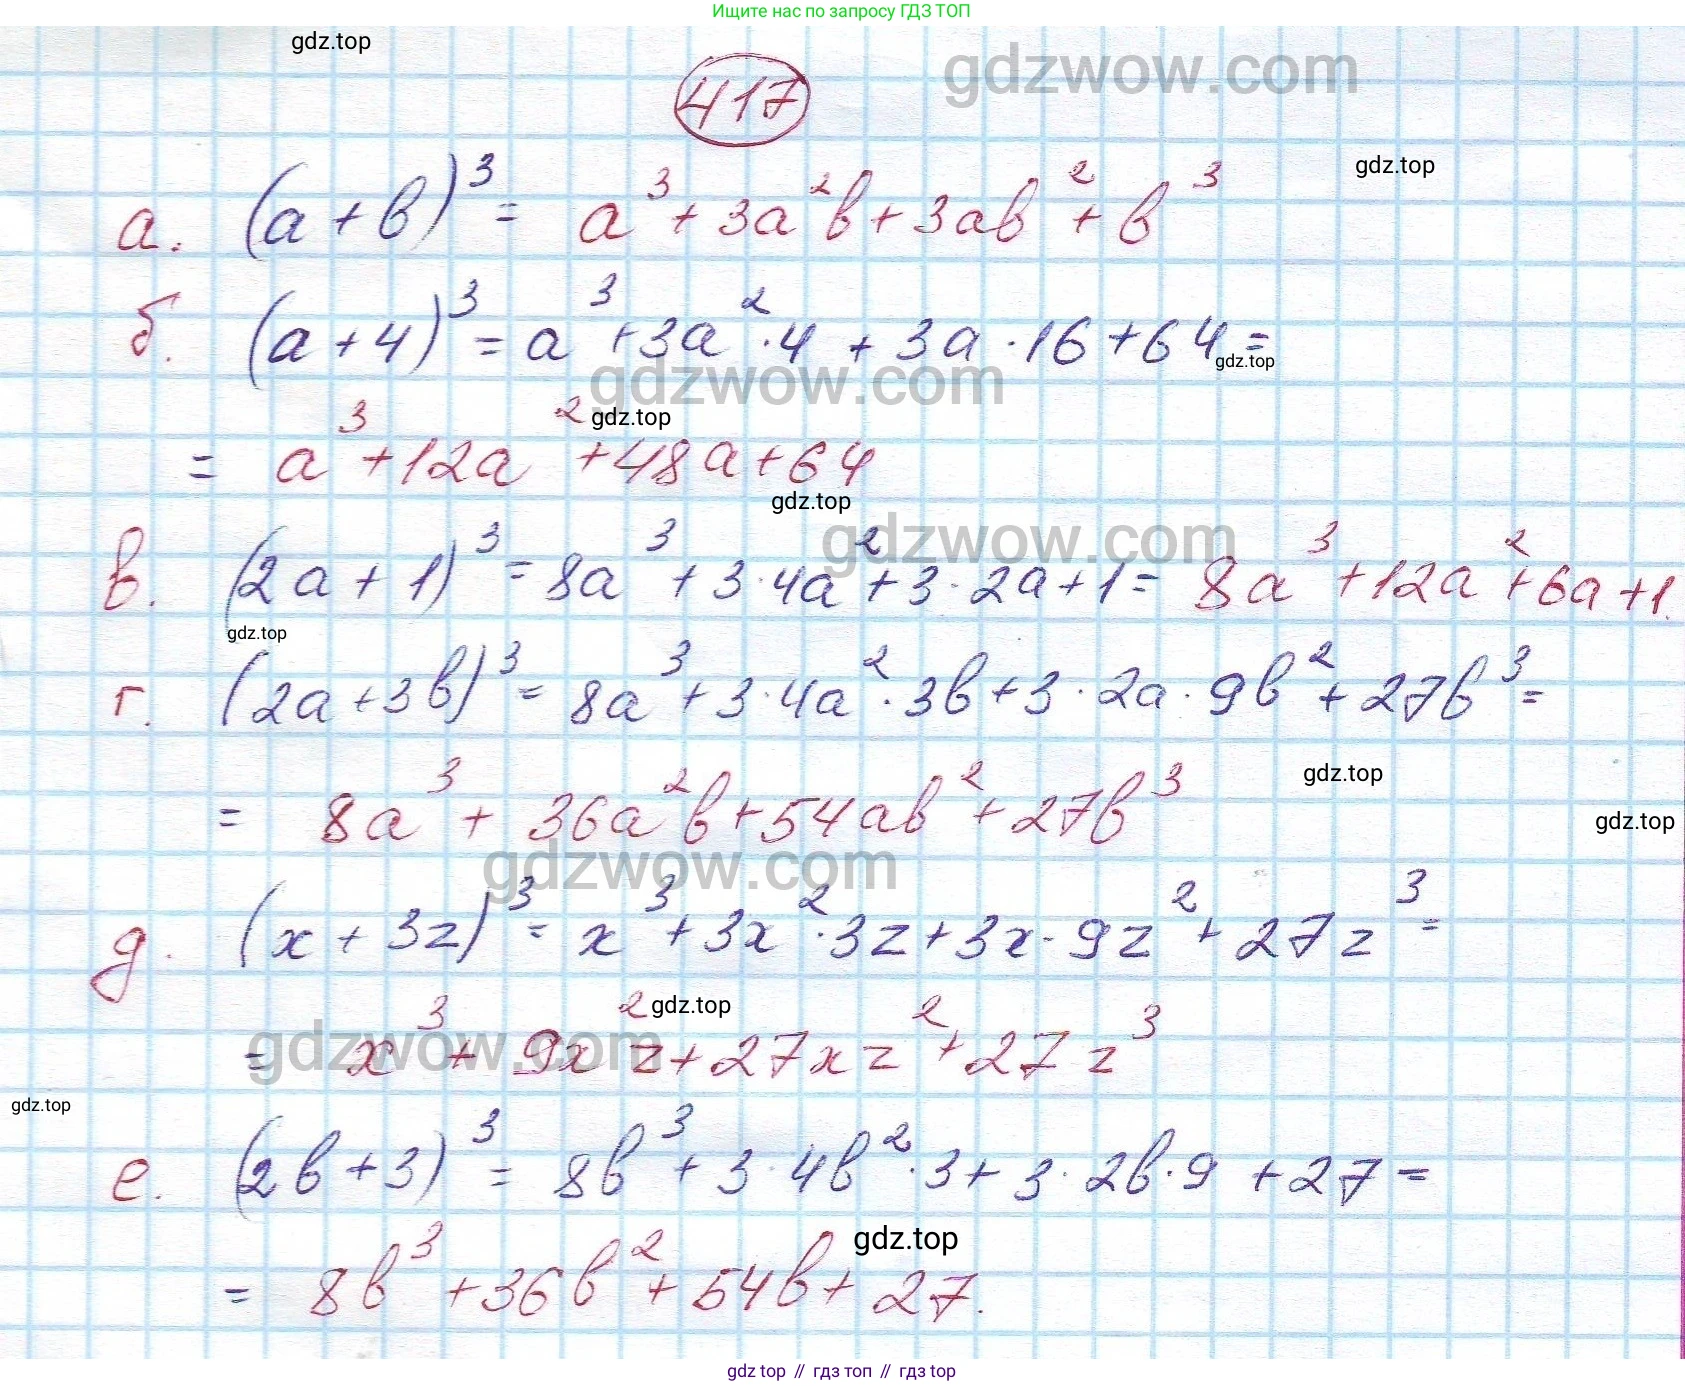 Ищите нас по запросу ГДЗ ТОП
gdz.top
gdzwow.com
417
gdz.top
а. (a+b)³ = a³+3a²b+3ab²+b³
б. (a+4)³ = a³+3a²·4 + 3a·16+64=
gdz.top
gdzwow.com
gdz.top
= a³+12a²+48a+64
gdz.top
gdzwow.com
в. (2a+1)³ = 8a³+3·4a²+3·2a+1= 8a³+12a²+6a+1.
gdz.top
г. (2a+3b)³ = 8a³+3·4a²·3b+3·2a·9b²+27b³=
gdz.top
= 8a³+36a²b+54ab²+27b³
gdz.top
gdzwow.com
д. (x+3z)³ = x³+3x²·3z+3x·9z²+27z³=
gdz.top
gdzwow.com
= x³+9x²z+27xz²+27z³
gdz.top
е. (2b+3)³ = 8b³+3·4b²·3+3·2b·9+27=
gdz.top
= 8b³+36b²+54b+27.
gdz.top // гдз топ // гдз.top